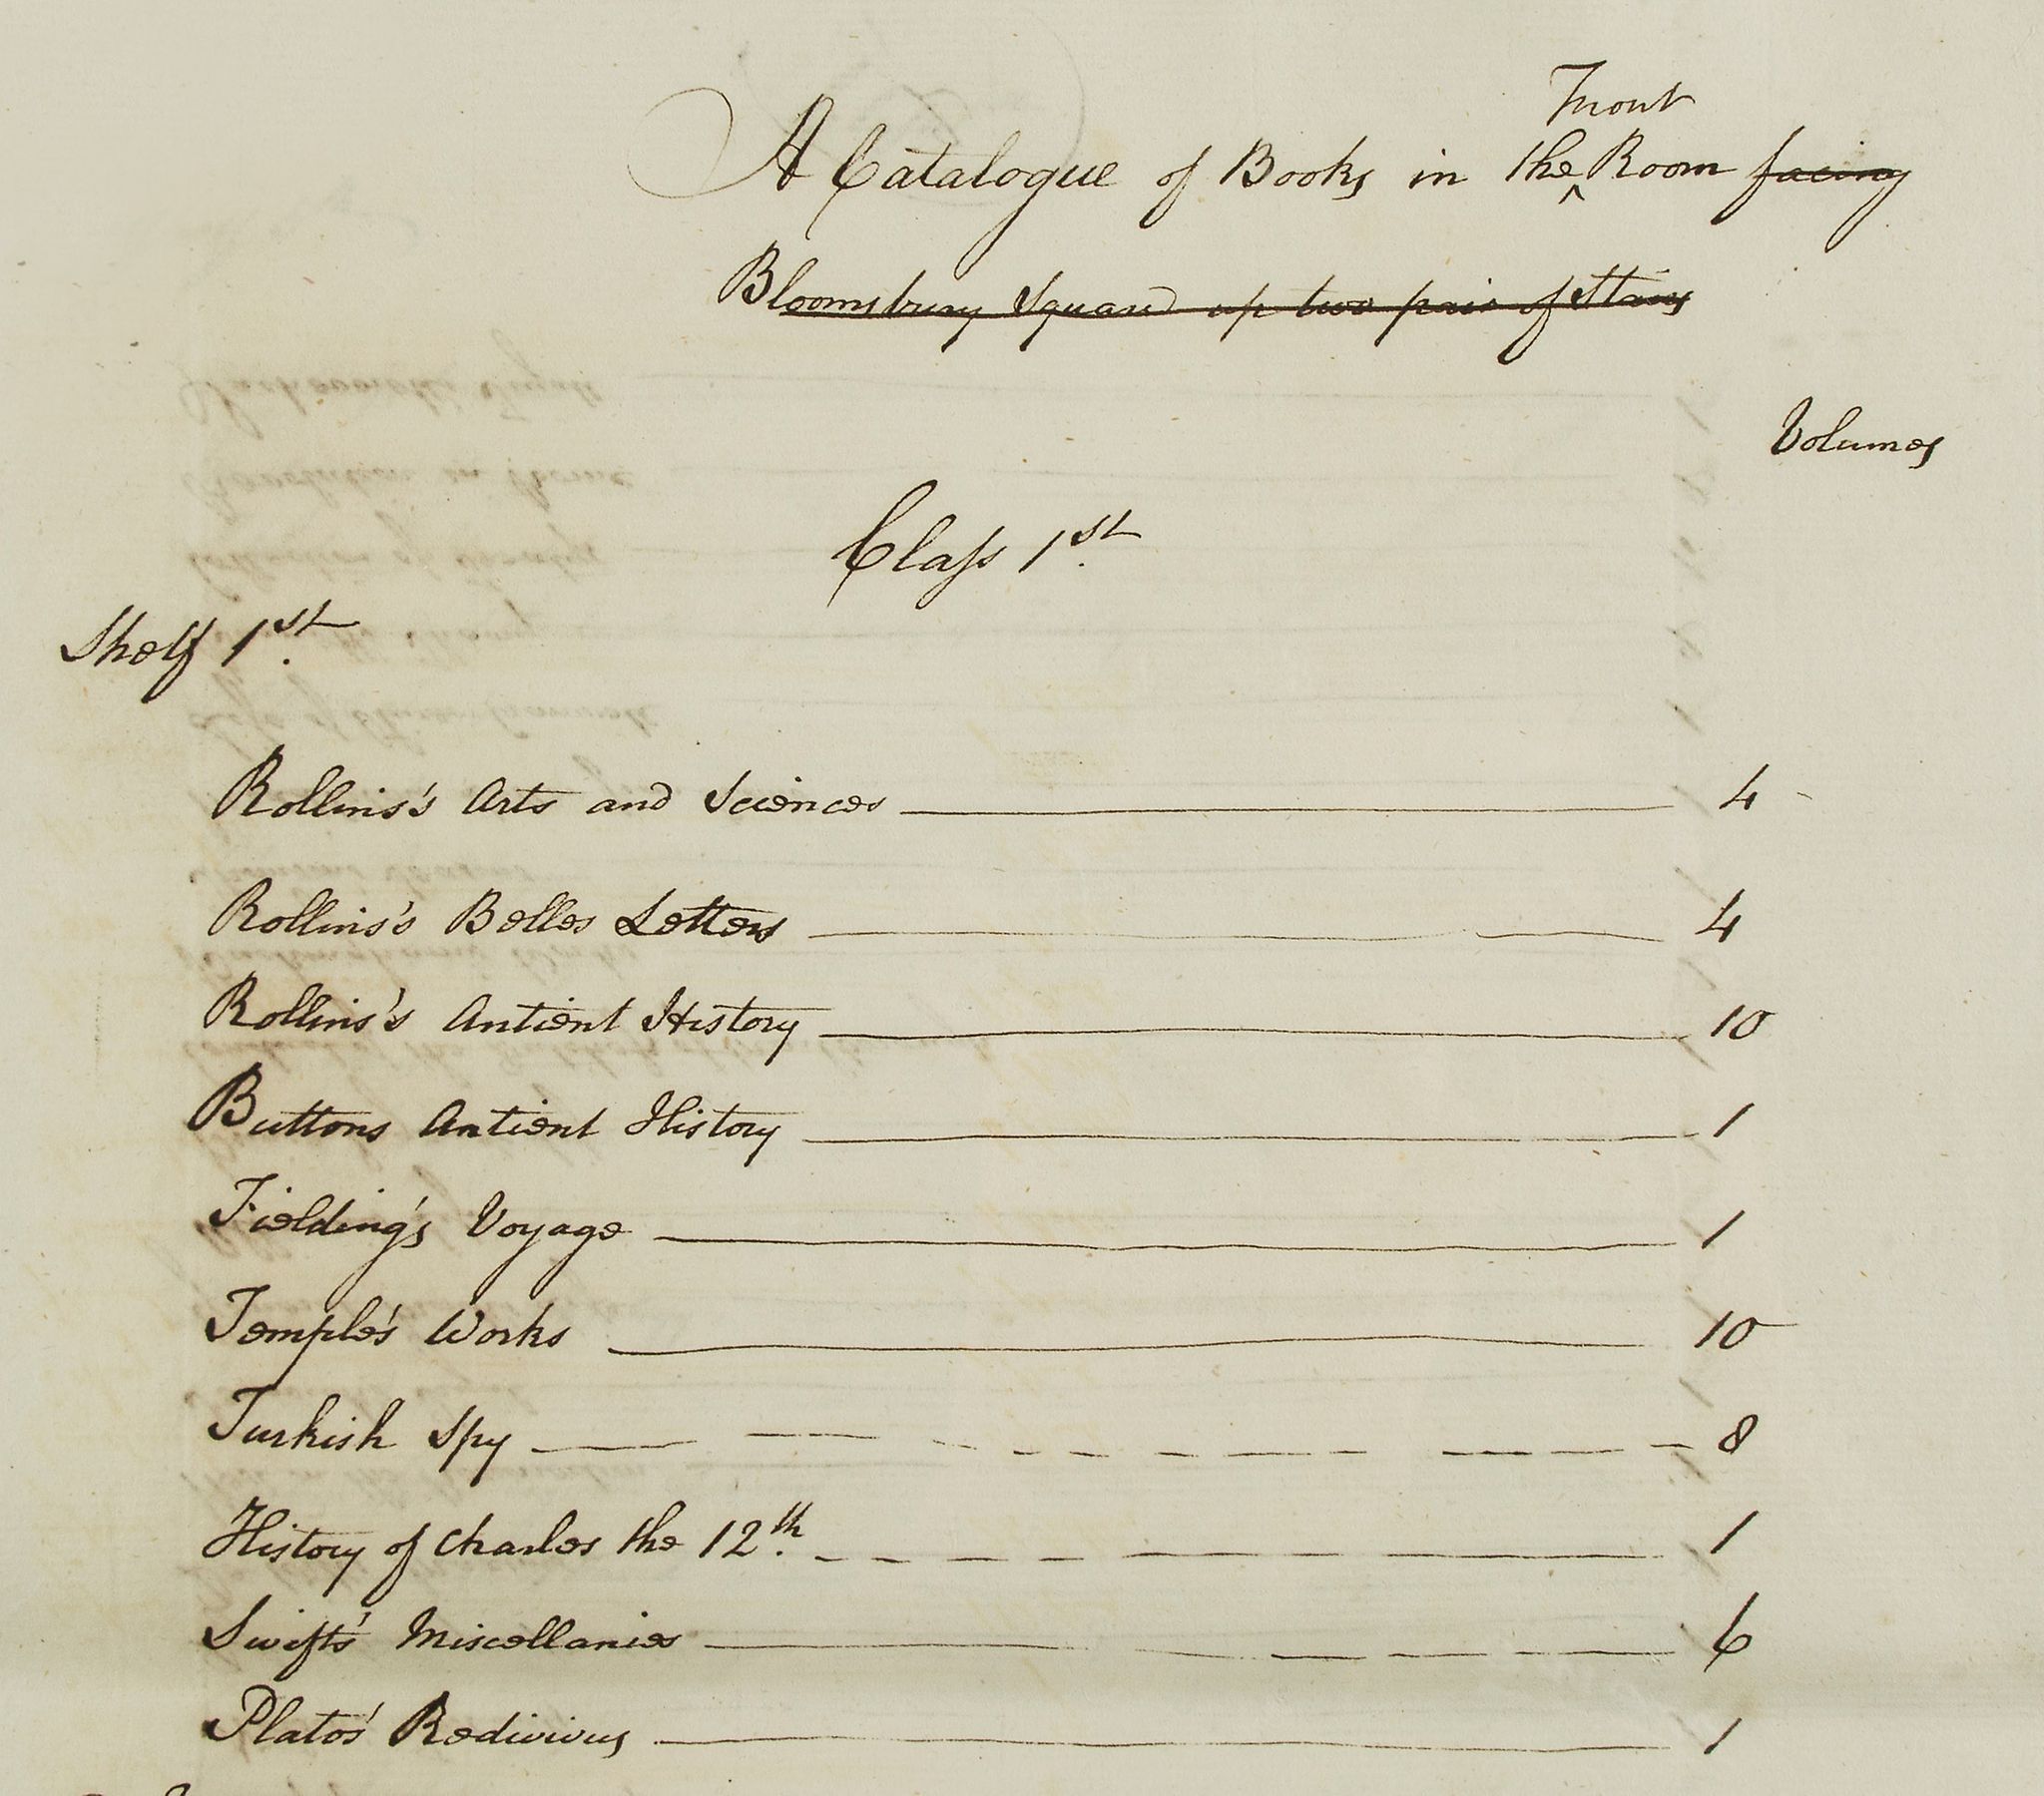 Front
A Catalogue of Books in the ^ Room facing
Bloomsbury Square up two pair of Stairs
Volumes
Class 1st.
Shelf 1st.
Rollins's Arts and Sciences 4
Rollins's Belles Letters 4
Rollins's Antient History 10
Buttons Antient History 1
Fielding's Voyage 1
Temple's Works 10
Turkish Spy 8
History of Charles the 12th. 1
Swift's Miscellanies 6
Plato's Redivivus 1